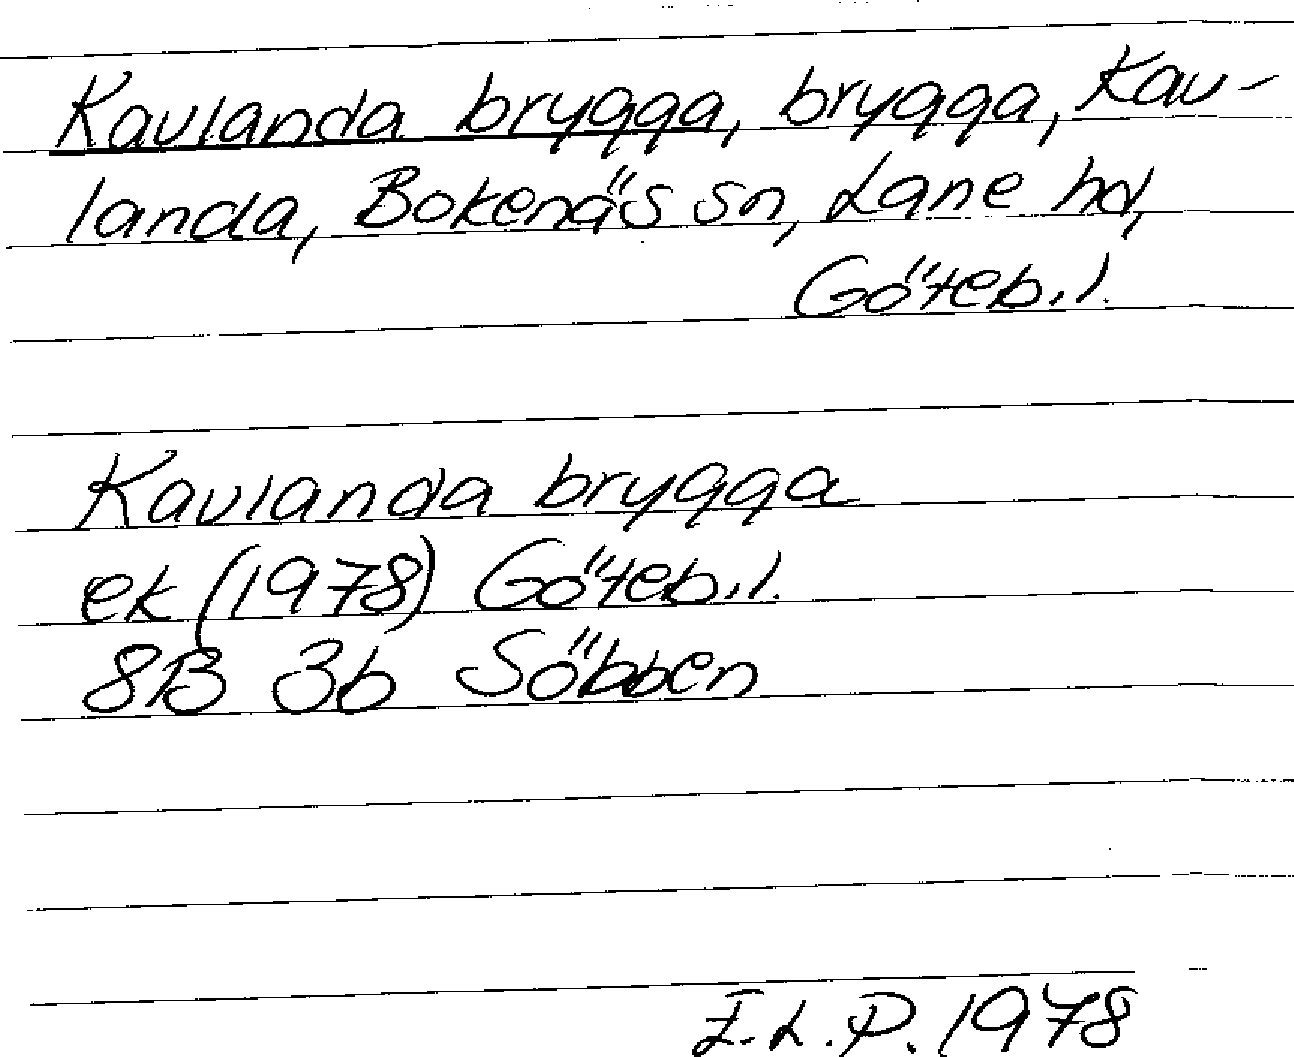 Kavlanda brygga, brygga, Kav-
landa, Bokenäs sn, Lane hd,
Göteb. l.
Kavlanda brygga
ek (1978) Göteb. l.
8B 3b Söbben
I.L.P. 1978